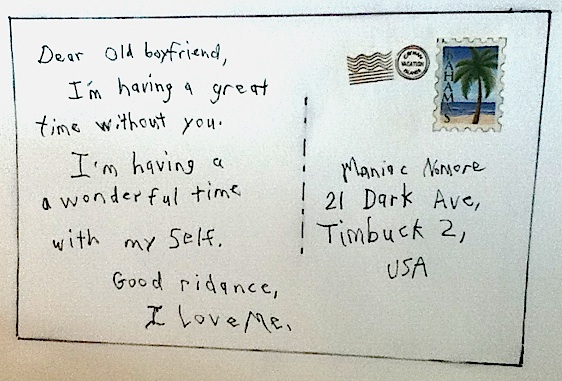 Dear Old boyfriend,
I'm having a great
time without you.
I'm having a
a wonderful time
with my Self.
Good ridance,
I Love Me.
VACATION
BAHAMAS
Maniac Nomore
21 Dark Ave,
Timbuck 2,
USA